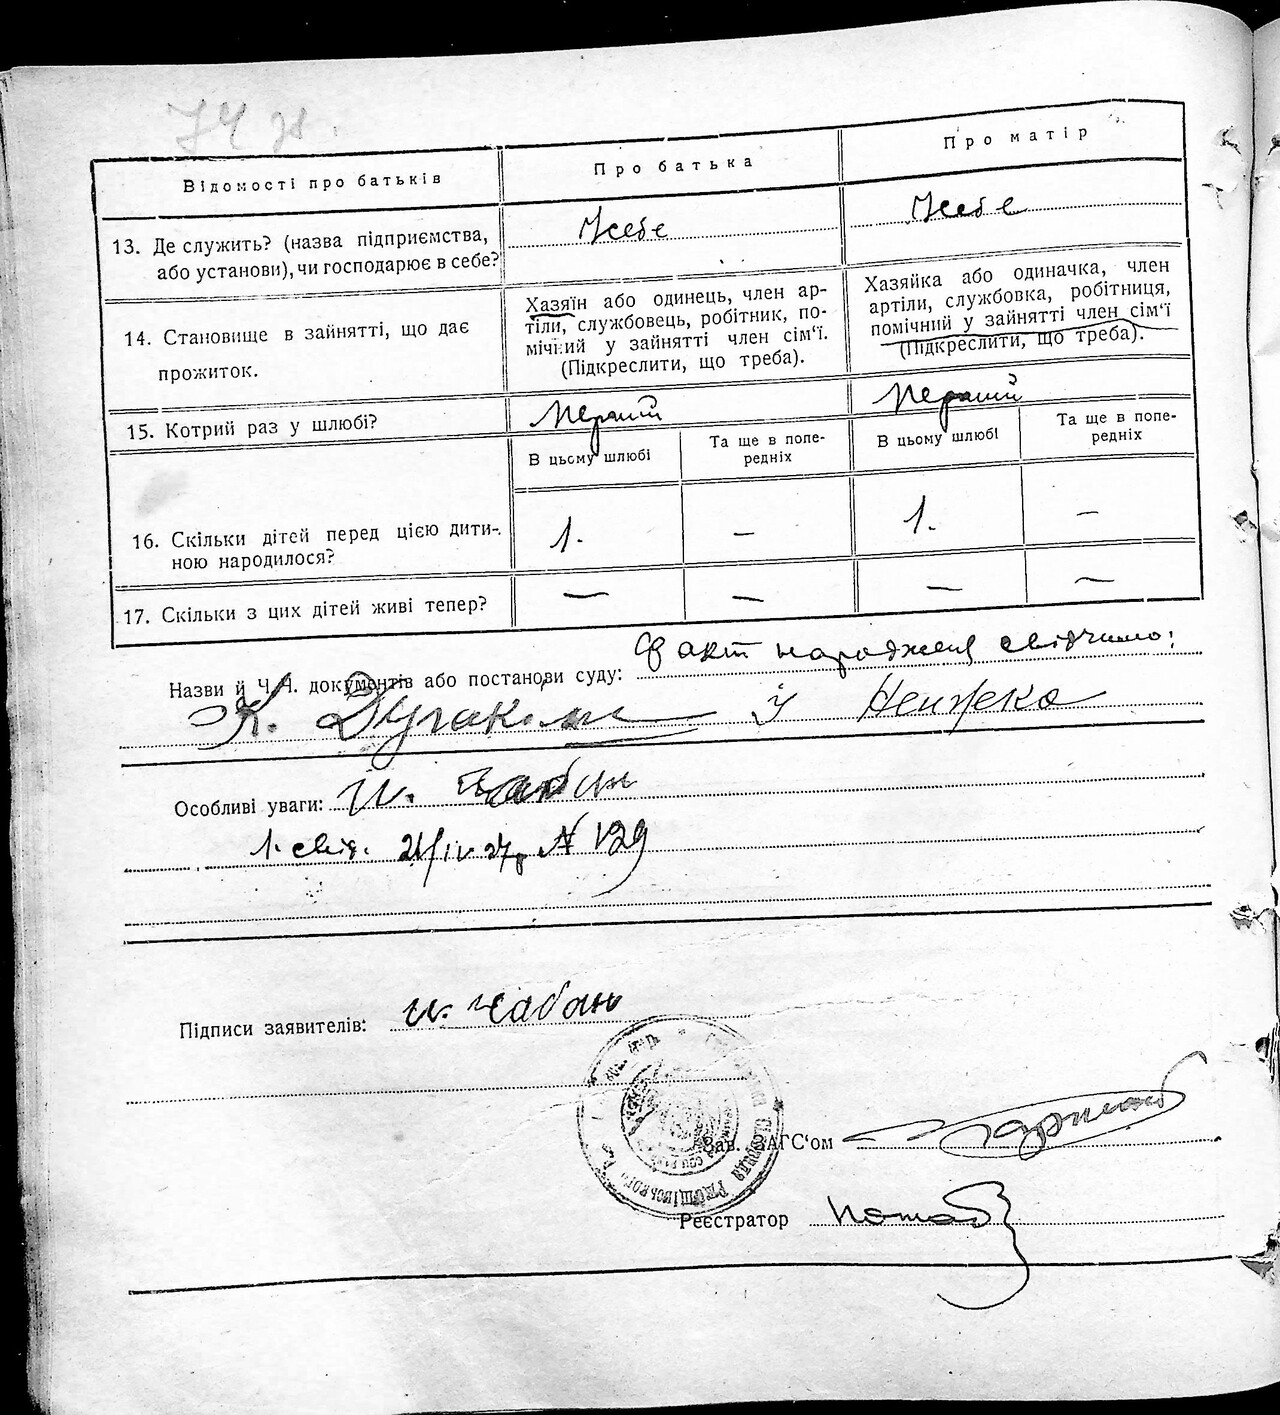 74
Відомості про батьків
Про батька
Про матір
13. Де служить? (назва підприємства,
або установи), чи господарює в себе?
У себе
У себе
14. Становище в зайнятті, що дає
прожиток.
Хазяїн або одинець, член ар-
тіли, службовець, робітник, по-
мічний у зайнятті член сім'ї.
(Підкреслити, що треба).
Хазяйка або одиначка, член
артіли, службовка, робітниця,
помічний у зайнятті член сім'ї
(Підкреслити, що треба).
15. Котрий раз у шлюбі?
Перший
Перший
В цьому шлюбі
Та ще в попе-
редніх
В цьому шлюбі
Та ще в попе-
редніх
16. Скільки дітей перед цією дити-
ною народилося?
1.
—
1.
—
17. Скільки з цих дітей живі тепер?
—
—
—
—
Назви й Ч.Ч. документів або постанови суду: Факт народження свідчимо:
К.
Особливі уваги: И. Чабан
1. свід. № 129
Підписи заявителів: И. Чабан
Зав. ЗАГС'ом
Реєстратор